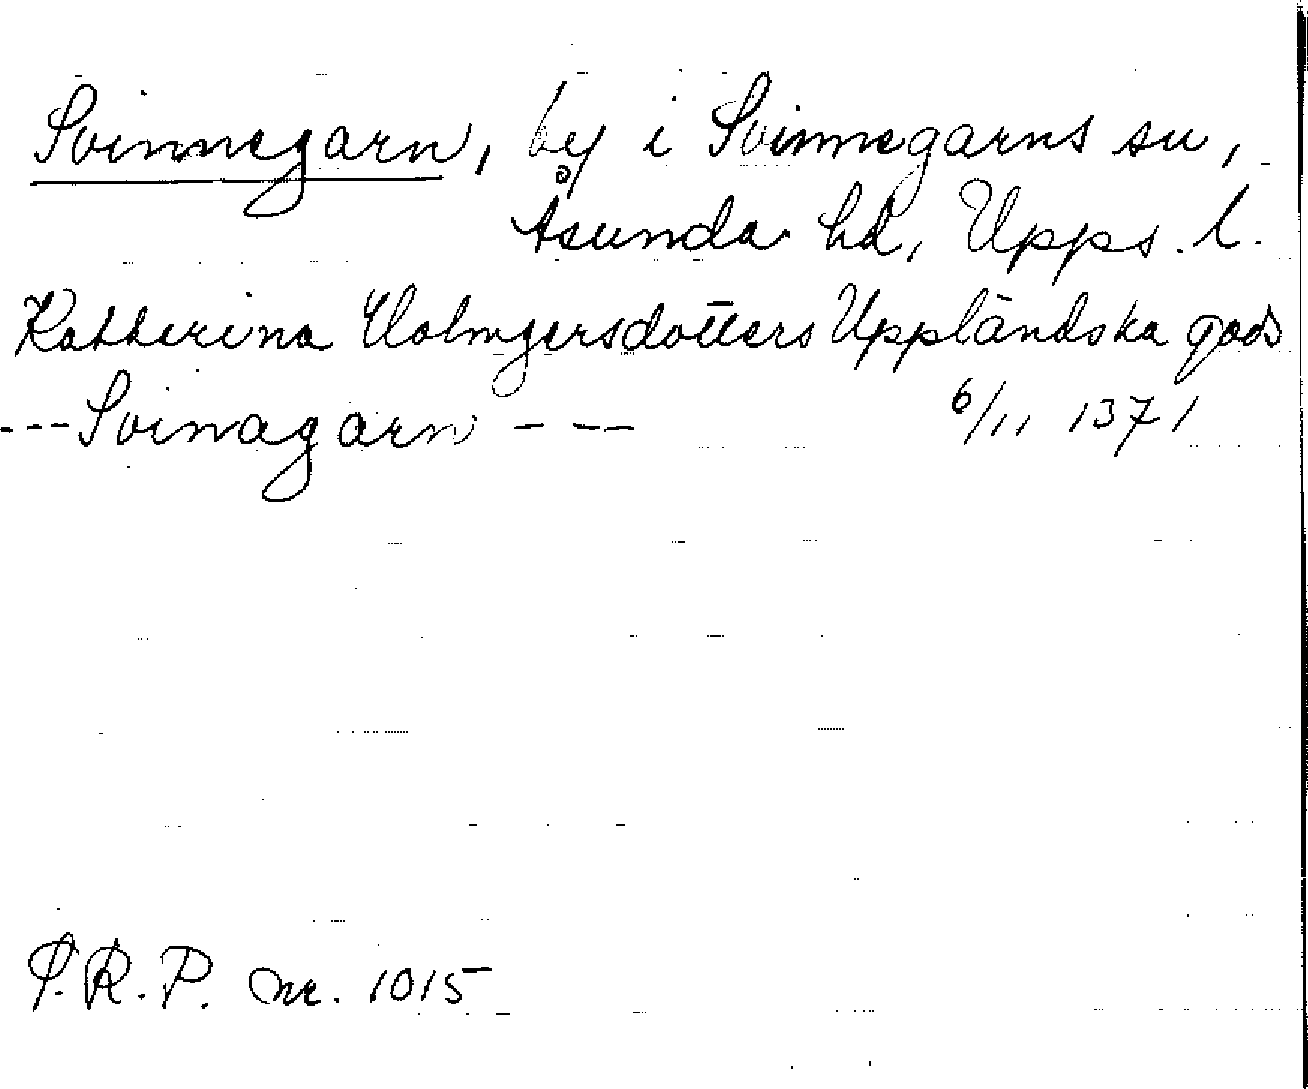 Svinnegarn, by i Svinnegarns sn,
Åsunda hd, Upps. l.
Katherina Holmgersdotters Uppländska gods
---Svinagarn --- 6/11 1371
S.R.P. nr. 1015